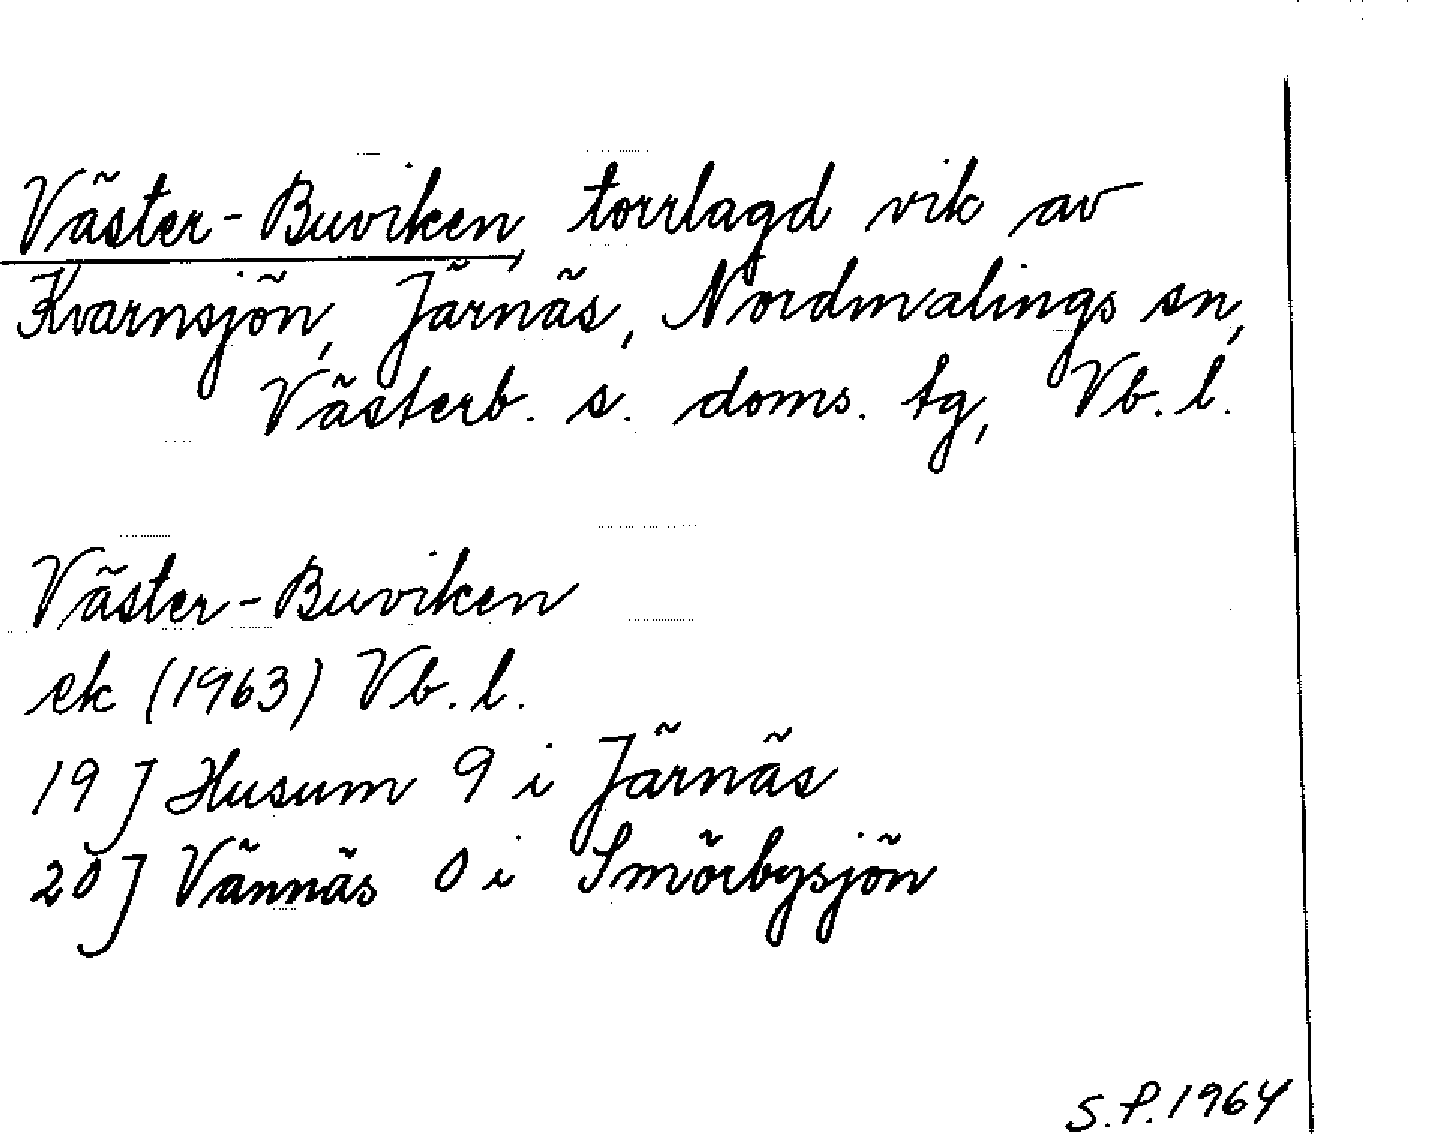 Väster-Buviken, torrlagd vik av
Kvarnsjön, Järnäs, Nordmalings sn,
Västerb. s. doms. tg, Vb. l.
Väster-Buviken
ek (1963) Vb. l.
19 J Husum 9 i Järnäs
20 J Vännäs 0 i Smörbysjön
S.P. 1964